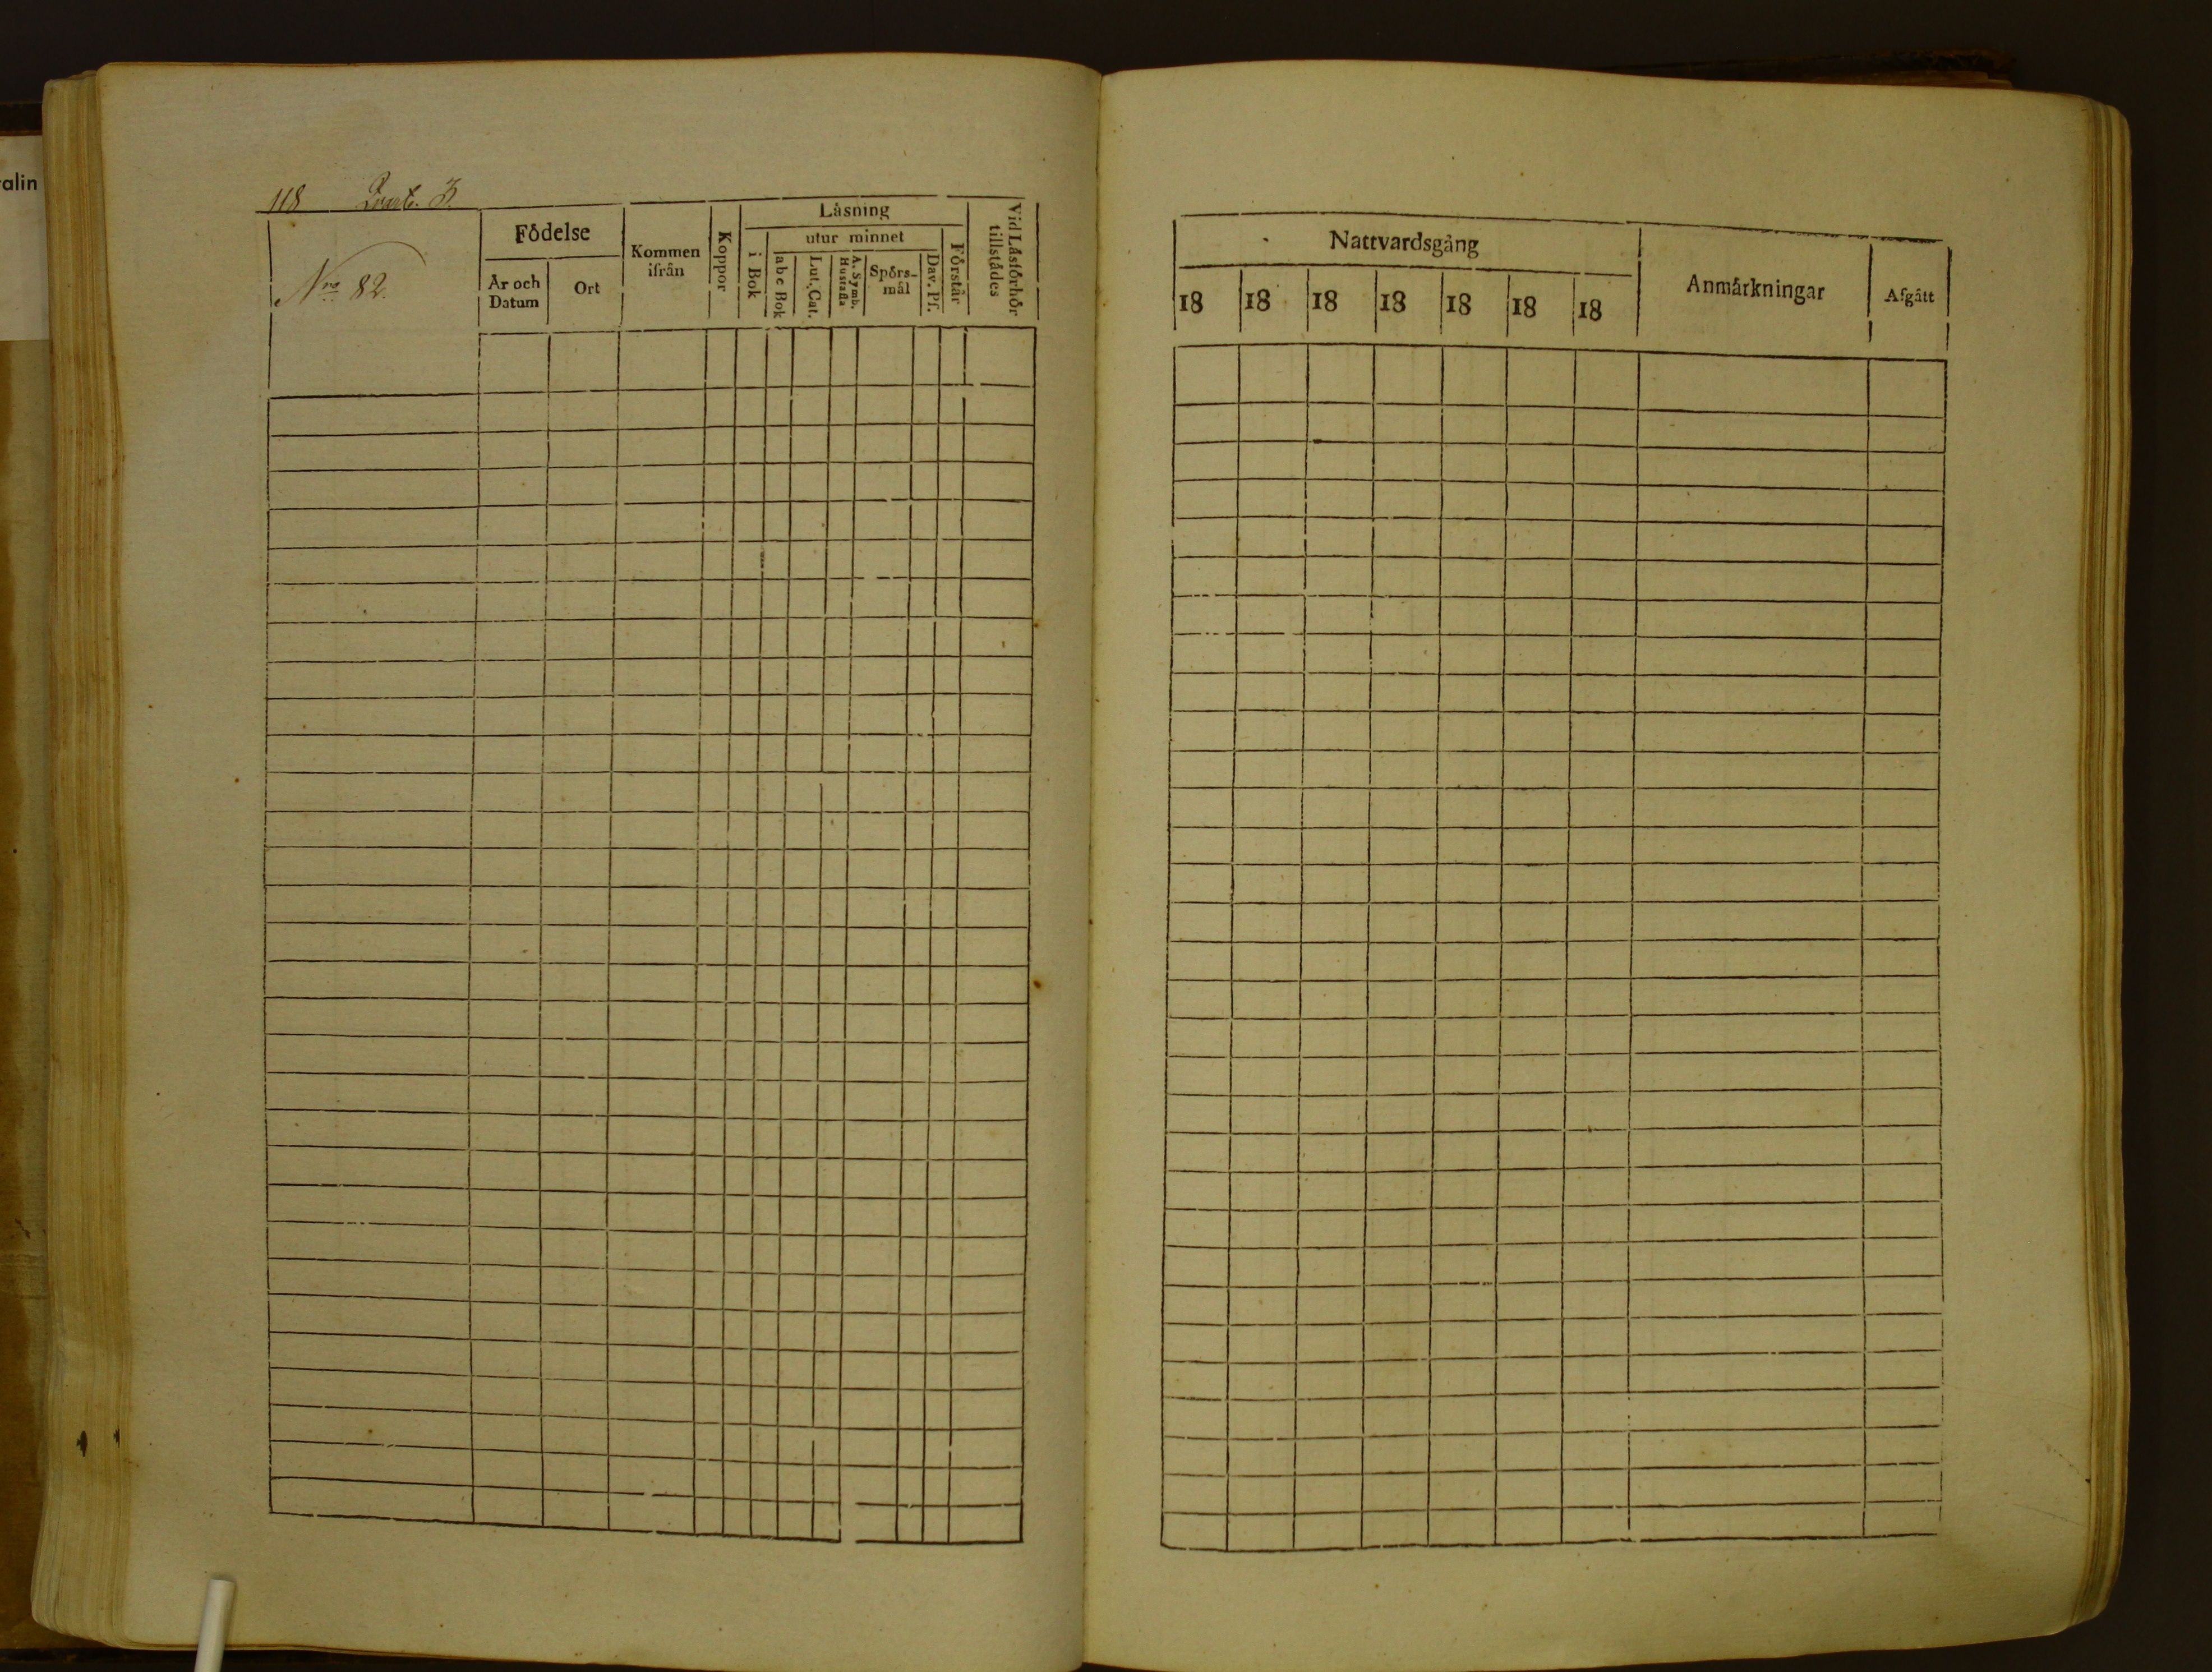 alin
118 Qvart. 3.
Nro 82.
Födelse
År och Datum
Ort
Kommen ifrån
Koppor
Läsning
i Bok
utur minnet
a b c Bok
Lut. Cat.
A. Symb. Hustafla
Spörsmål
Dav. Pf.
Förstår
Vid Läsförhör tillstådes
Nattvardsgång
18 18 18 18 18 18 18
Anmärkningar
Afgått